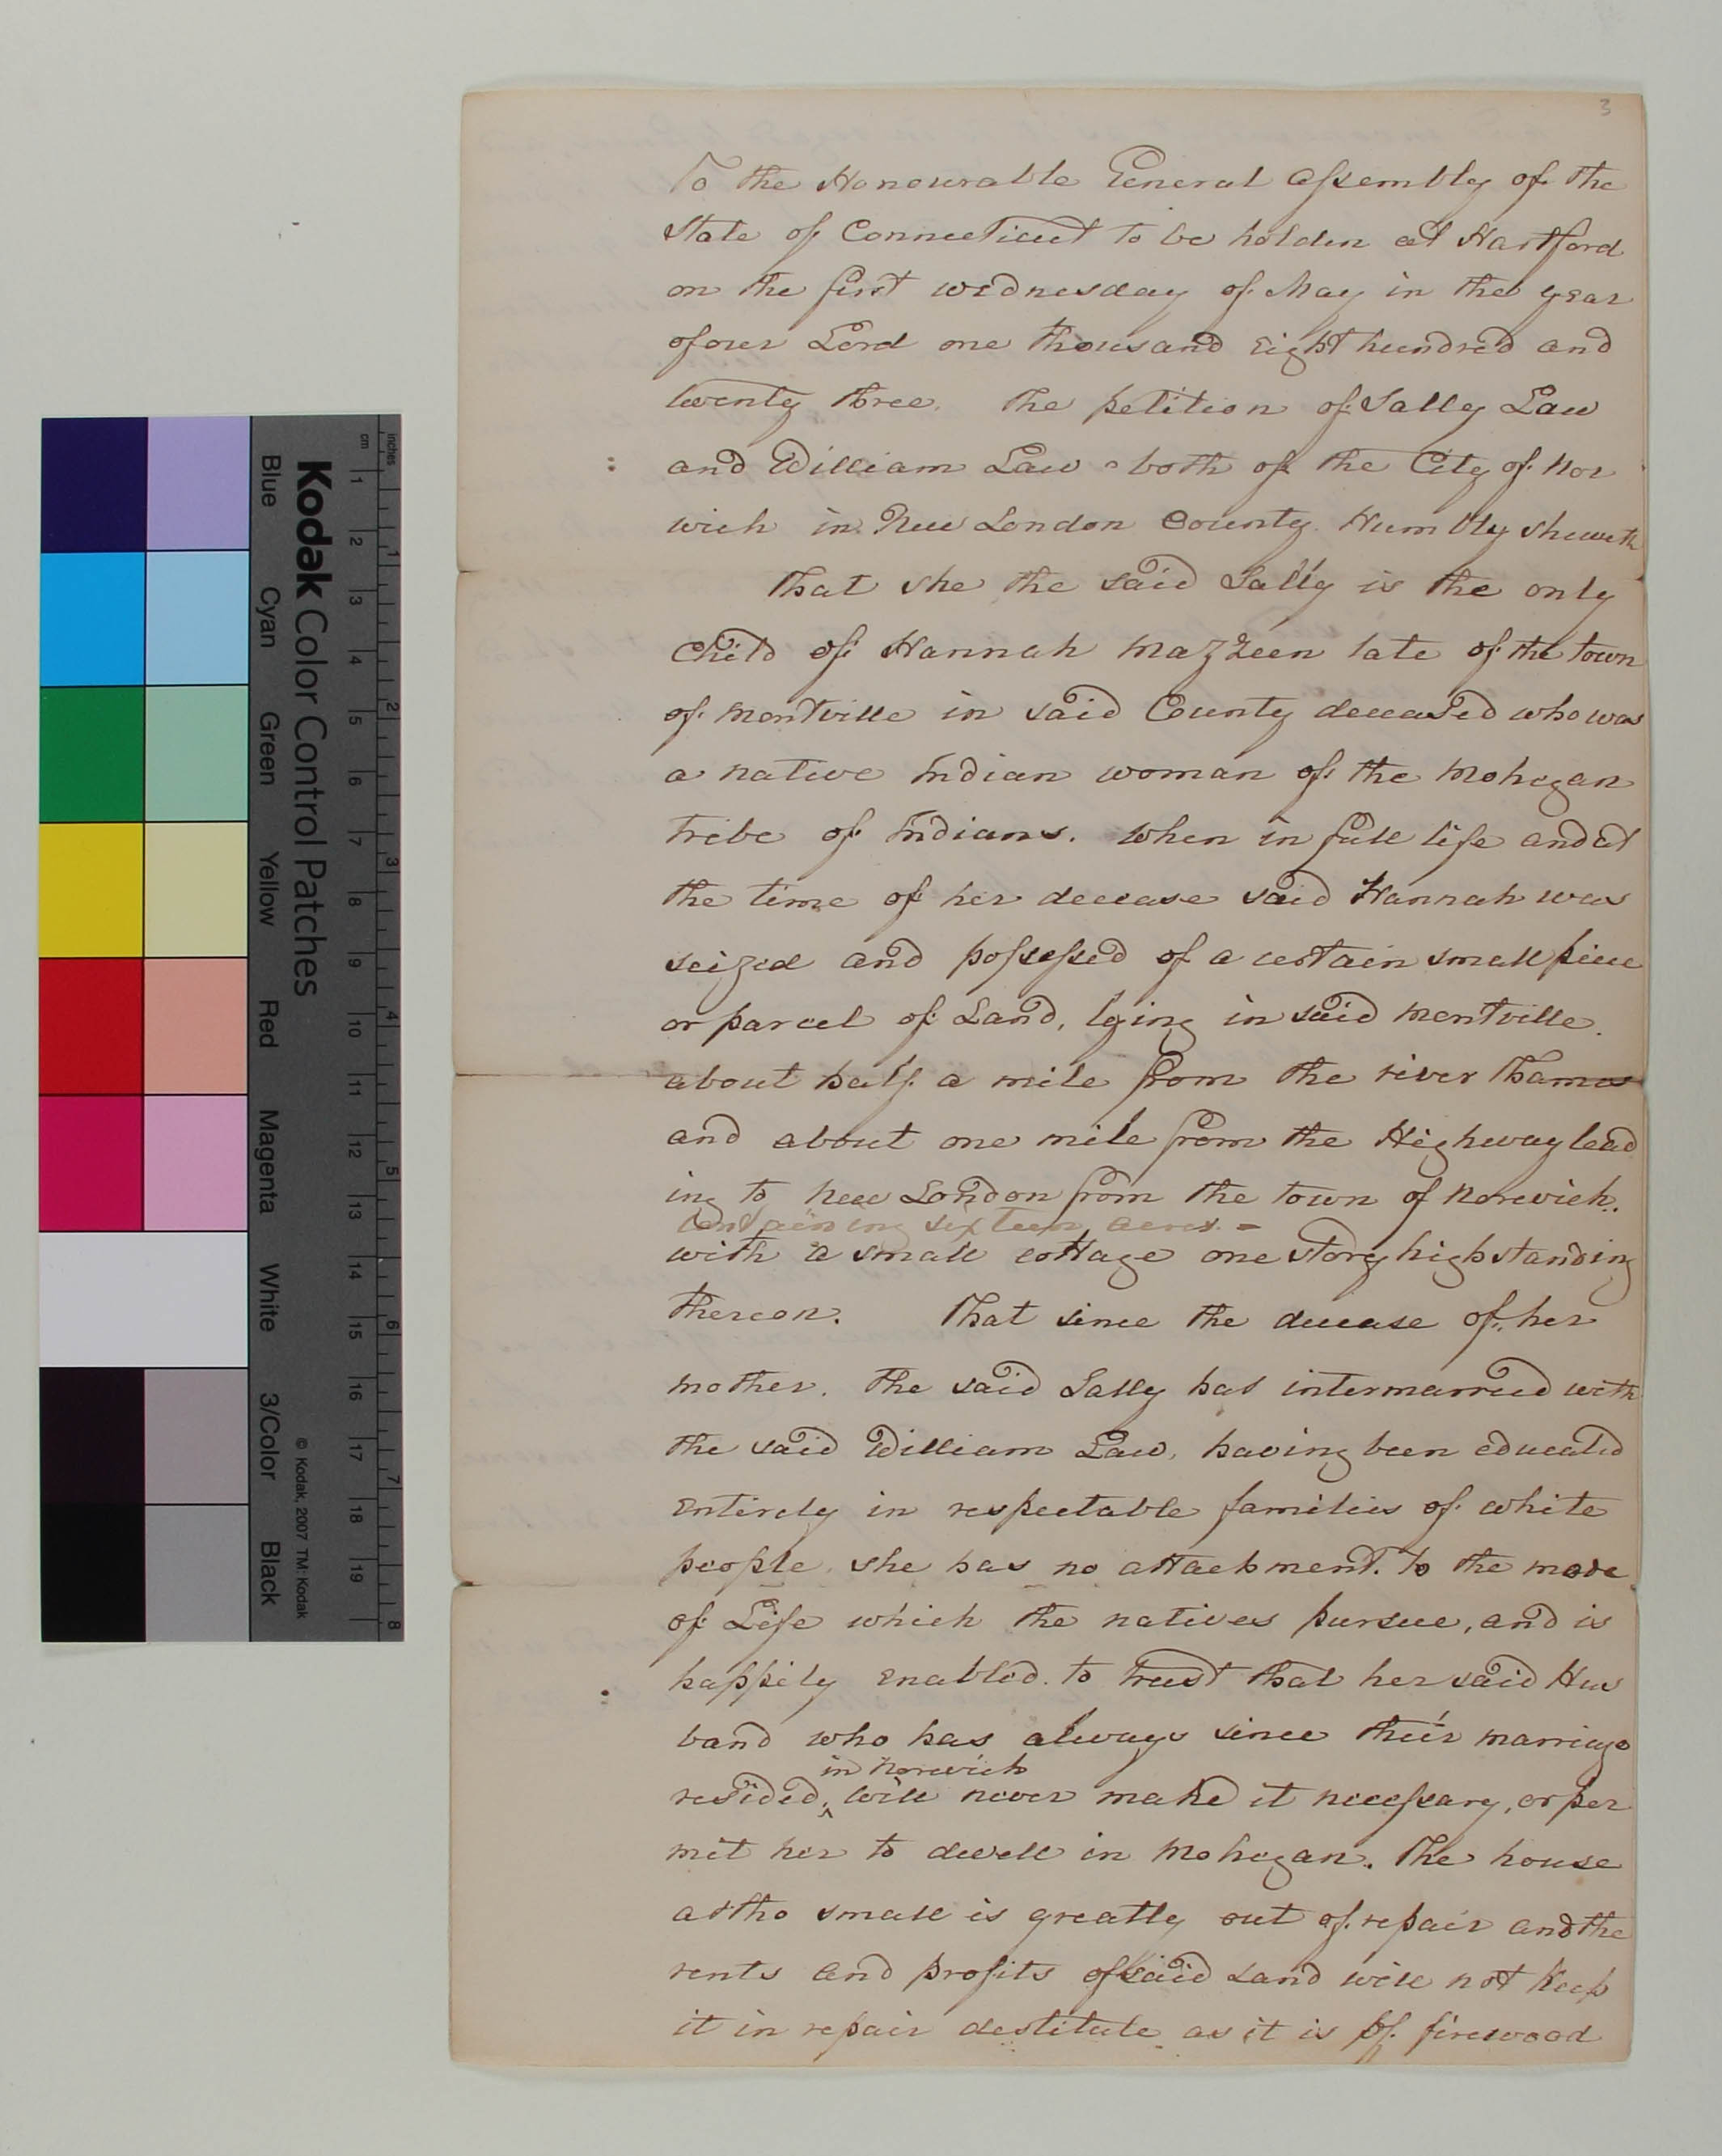 3
To the Honourable General Assembly of the
State of Connecticut to be holden at Hartford
on the first wednesday of May in the year
of our Lord one thousand Eight hundred and
twenty three. The petition of Sally Law
and William Law both of the City of Nor
wich in New London County. Humbly sheweth
That she the said Sally is the only
Child of Hannah Mazzeen late of the town
of Montville in said County deceased who was
a native Indian woman of the Mohegan
tribe of Indians. When in full life and at
the time of her decease said Hannah was
seized and possessed of a certain small piece
or parcel of Land, lying in said Montville.
about half a mile from the river Thames
and about one mile from the Highway lead
ing to New London from the town of Norwich.
Containing sixteen acres. -
with a small cottage one story high standing
thereon. That since the decease of her
mother. The said Sally has intermarried with
the said William Law, having been educated
Entirely in respectable families of white
people. she has no attachment. to the mode
of Life which the natives pursue, and is
happily Enabled. to trust that her said Hus
band who has always since their marriage
in Norwich
resided, ^ will never make it necessary, or per
mit her to dwell in Mohegan. The house
altho small is greatly out of repair and the
rents and profits of said Land will not Keep
it in repair destitute as it is of firewood
Kodak Color Control Patches
© Kodak, 2007 TM: Kodak
inches 1 2 3 4 5 6 7 8
cm 1 2 3 4 5 6 7 8 9 10 11 12 13 14 15 16 17 18 19
Blue Cyan Green Yellow Red Magenta White 3/Color Black